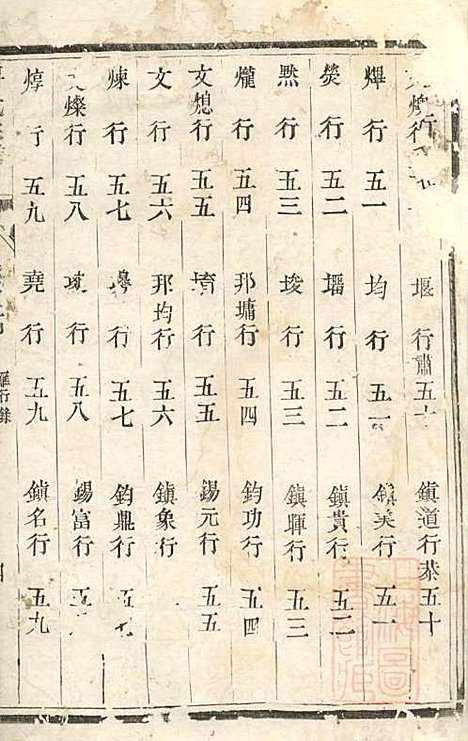 堰行肅五十 鎮道行恭五十
煇行五一 均行五一 鎮美行五一
熒行五二 壩行五二 鎮貴行五二
㸃行五三 埈行五三 鎮暉行五三
爖行五四 邦墉行五四 鈞功行五四
文熄行五五 堉行五五 錫元行五五
文行五六 邦均行五六 鎮象行五六
煉行五七 行五七 鈞鼎行五七
燦行五八 行五八 錫富行五八
焞行五九 堯行五九 鎮名行五九